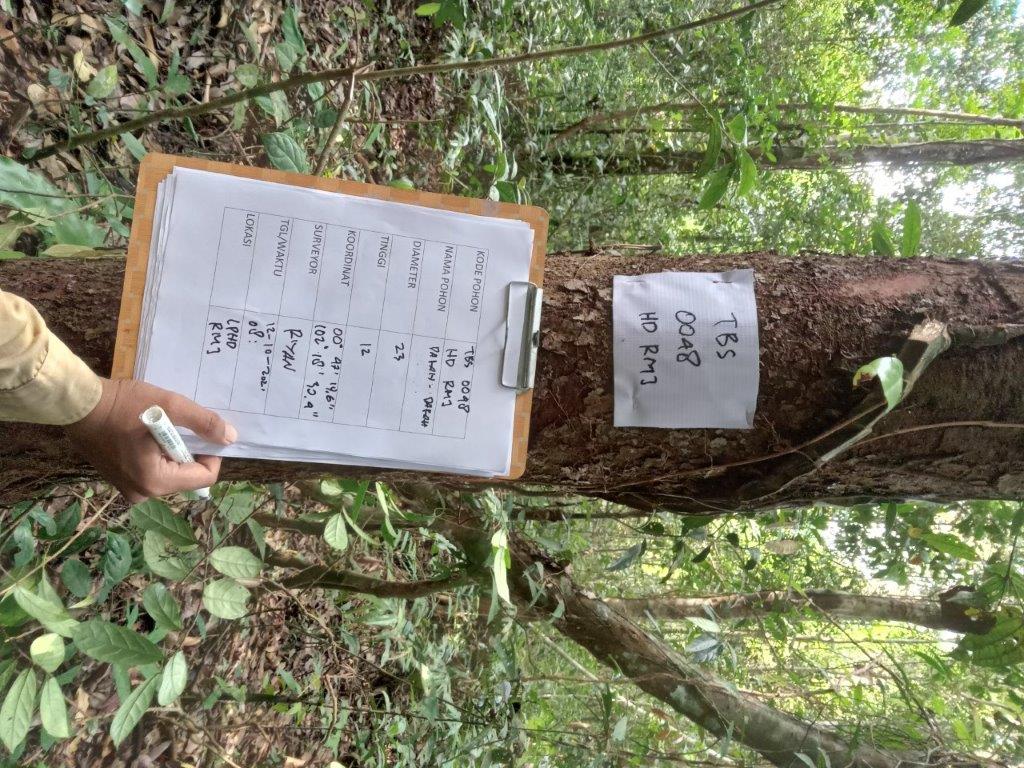 TBS
0048
HD RMJ
KODE POHON TBS 0048
HD RMJ
NAMA POHON DARAH - DARAH
DIAMETER 23
TINGGI 12
KOORDINAT 00° 47' 19,6"
102° 18' 30.4"
SURVEYOR RIYAN
TGL/WAKTU 12-10-2021
08:
LOKASI LPHD
RMJ